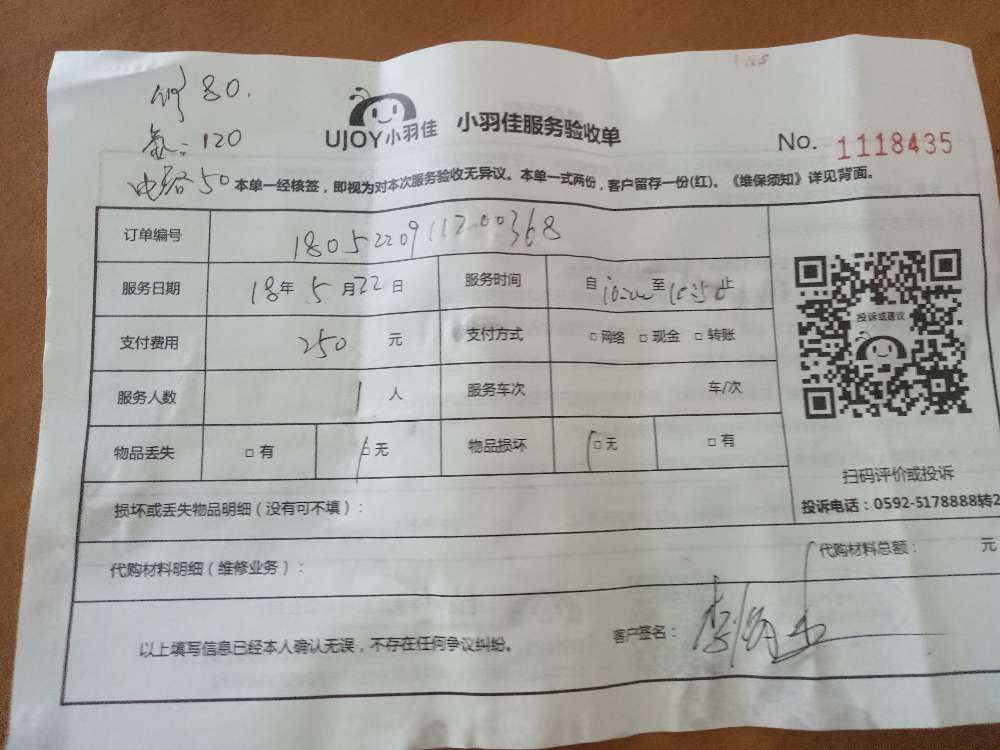 80.
氟：120
电路50
UJOY小羽佳 小羽佳服务验收单
No. 1118435
本单一经核签，即视为对本次服务验收无异议。本单一式两份，客户留存一份(红)。《维保须知》详见背面。
订单编号 180522091120036８
服务日期 18年 5月22日 服务时间 自10:00至10:50止
支付费用 250 元 支付方式 □网络 □现金 □转账
服务人数 1人 服务车次 车/次
物品丢失 □有 □无 物品损坏 □无 □有
投诉或建议
扫码评价或投诉
投诉电话：0592-5178888转2
损坏或丢失物品明细（没有可不填）：
代购材料明细（维修业务）： 代购材料总额： 元
以上填写信息已经本人确认无误，不存在任何争议纠纷。 客户签名：